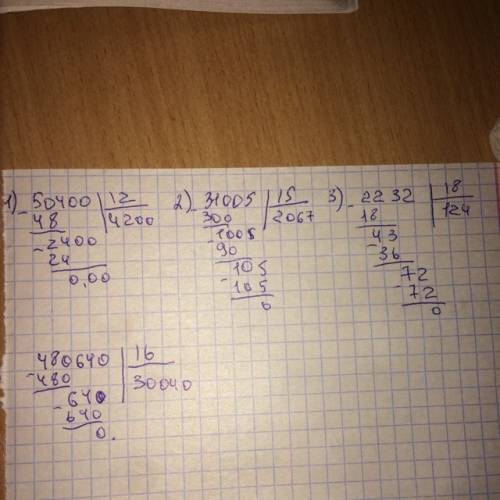 1) 50400 | 12
48 | 4200
2400
24
0,00
2) 31005 | 15
300 | 2067
1005
90
105
105
0
3) 2232 | 18
18 | 124
43
36
72
72
0
480640 | 16
480 | 30040
640
640
0.